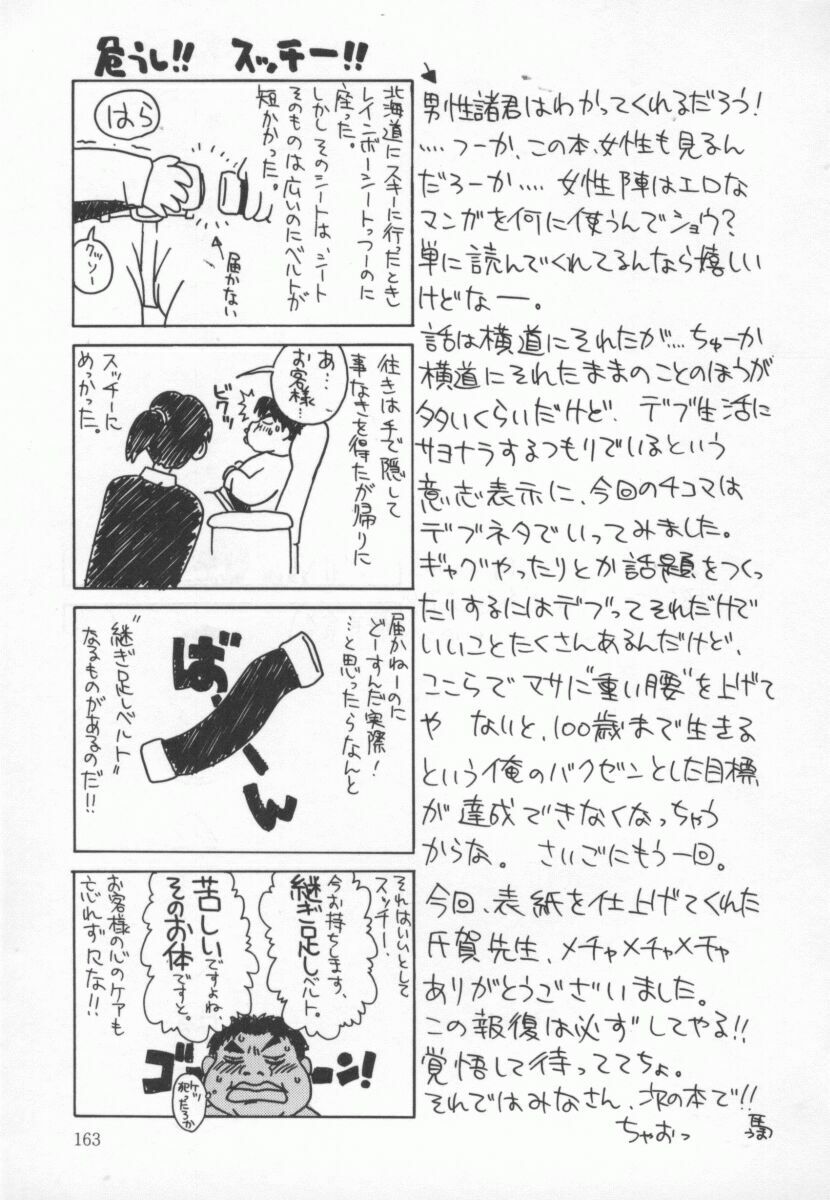 危うし!! スッチー!!
北海道にスキーに行ったとき
レインボーシートっつーのに
座った。
しかしそのシートは、シート
そのものは広いのにベルトが
短かかった。
はら
届かない
クソー
往きは手で隠して
事なきを得たが帰りに
スッチーに
めっかった。
あ…
お客様…
ビクッ
届かねーのに
どーすんだ実際!
…と思ったらなんと
"継ぎ足しベルト"
なるものがあるのだ!!
ばーん
それはいいとして
スッチー、
今お持ちします、
継ぎ足しベルト。
苦しいですよね、
そのお体ですと。
お客様の心のケアも
忘れずにな!!
ゴーーン!
男性諸君はわかってくれるだろう!
‥‥つーか、この本、女性も見るん
だろーか‥‥ 女性陣はエロな
マンガを何に使うんでショウ?
単に読んでくれてるんなら嬉しい
けどなー。
話は横道にそれたが…ちゅーか
横道にそれたままのことのほうが
多いくらいだけど、デブ生活に
サヨナラするつもりでいるという
意志表示に、今回の4コマは
デブネタでいってみました。
ギャグやったりとか話題をつくっ
たりするにはデブってそれだけで
いいことたくさんあるんだけど、
ここらでマサに"重い腰"を上げて
や ないと、100歳まで生きる
という俺のバクゼンとした目標
が達成できなくなっちゃう
からな。 さいごにもう一回。
今回、表紙を仕上げてくれた
氏賀先生、メチャメチャメチャ
ありがとうございました。
この報復は必ずしてやる!!
覚悟して待っててちょ。
それではみなさん、次の本で!!
ちゃおっ
163